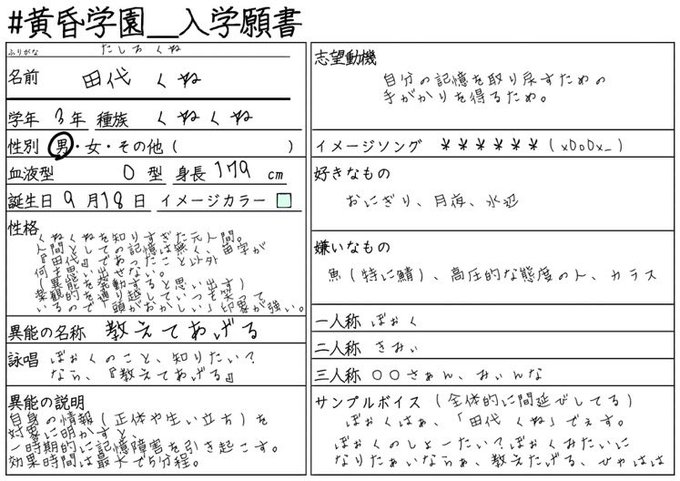 #黄昏学園__入学願書
ふりがな たしろ くね
名前 田代 くね
学年 3年 種族 くねくね
性別 男・女・その他( )
血液型 O型 身長 179 cm
誕生日 9月18日 イメージカラー
性格
くねくねを知りすぎた元人間。
人間としての記憶は無く、苗字が
『田代』であったこと以外
何も思い出せない。
(異能を発動すると思い出す)
楽観的を通り越していつも笑って
いるので「頭がおかしい」印象が強い。
異能の名称 教えてあげる
詠唱 ぼぉくのこと、知りたい?
なら、『教えてあげる』
異能の説明
自身の情報(正体や生い立ち)を
対象に明かすと、
一時期的に記憶障害を引き起こす。
効果時間は最大で5分程。
志望動機
自分の記憶を取り戻すための
手がかりを得るため。
イメージソング ******(x0o0x_)
好きなもの
おにぎり、月夜、水辺
嫌いなもの
魚(特に鯖)、高圧的な態度の人、カラス
一人称 ぼぉく
二人称 きみぃ
三人称 ○○さぁん、みぃんな
サンプルボイス (全体的に間延びしてる)
ぼぉくはぁ、「田代 くね」でぇす。
ぼぉくのしょーたい?ぼぉくみたいに
なりたぁいならぁ、教えたげる、ひゃはは